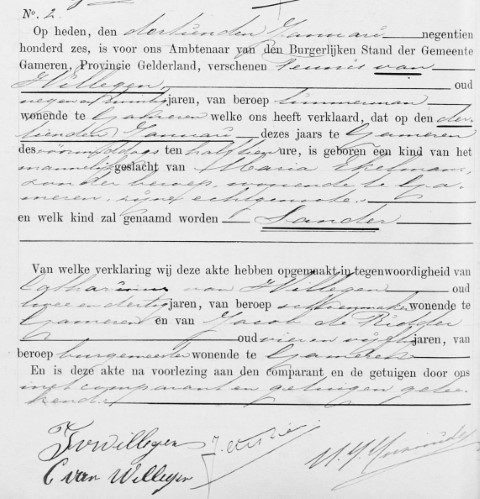 No. 2.
Op heden, den dertienden Januari negentien
honderd zes, is voor ons Ambtenaar van den Burgerlijken Stand der Gemeente
Gameren, Provincie Gelderland, verschenen Teunis van
Willegen oud
negen en twintig jaren, van beroep timmerman
wonende te Gameren welke ons heeft verklaard, dat op den der-
tienden Januari dezes jaars te Gameren
des voormiddags ten half tien ure, is geboren een kind van het
mannelijk geslacht van Maria Ekelmans,
zonder beroep, wonende te Ga-
meren, zijne echtgenoote
en welk kind zal genaamd worden Sander
Van welke verklaring wij deze akte hebben opgemaakt in tegenwoordigheid van
Catharinus van Willegen oud
twee en dertig jaren, van beroep schoenmaker wonende te
Gameren en van Jacob de Ridder
oud vier en vijftig jaren, van
beroep burgemeester wonende te Gameren
En is deze akte na voorlezing aan den comparant en de getuigen door ons
met comparant en getuigen getee-
kend
T v Willegen
C van Willegen